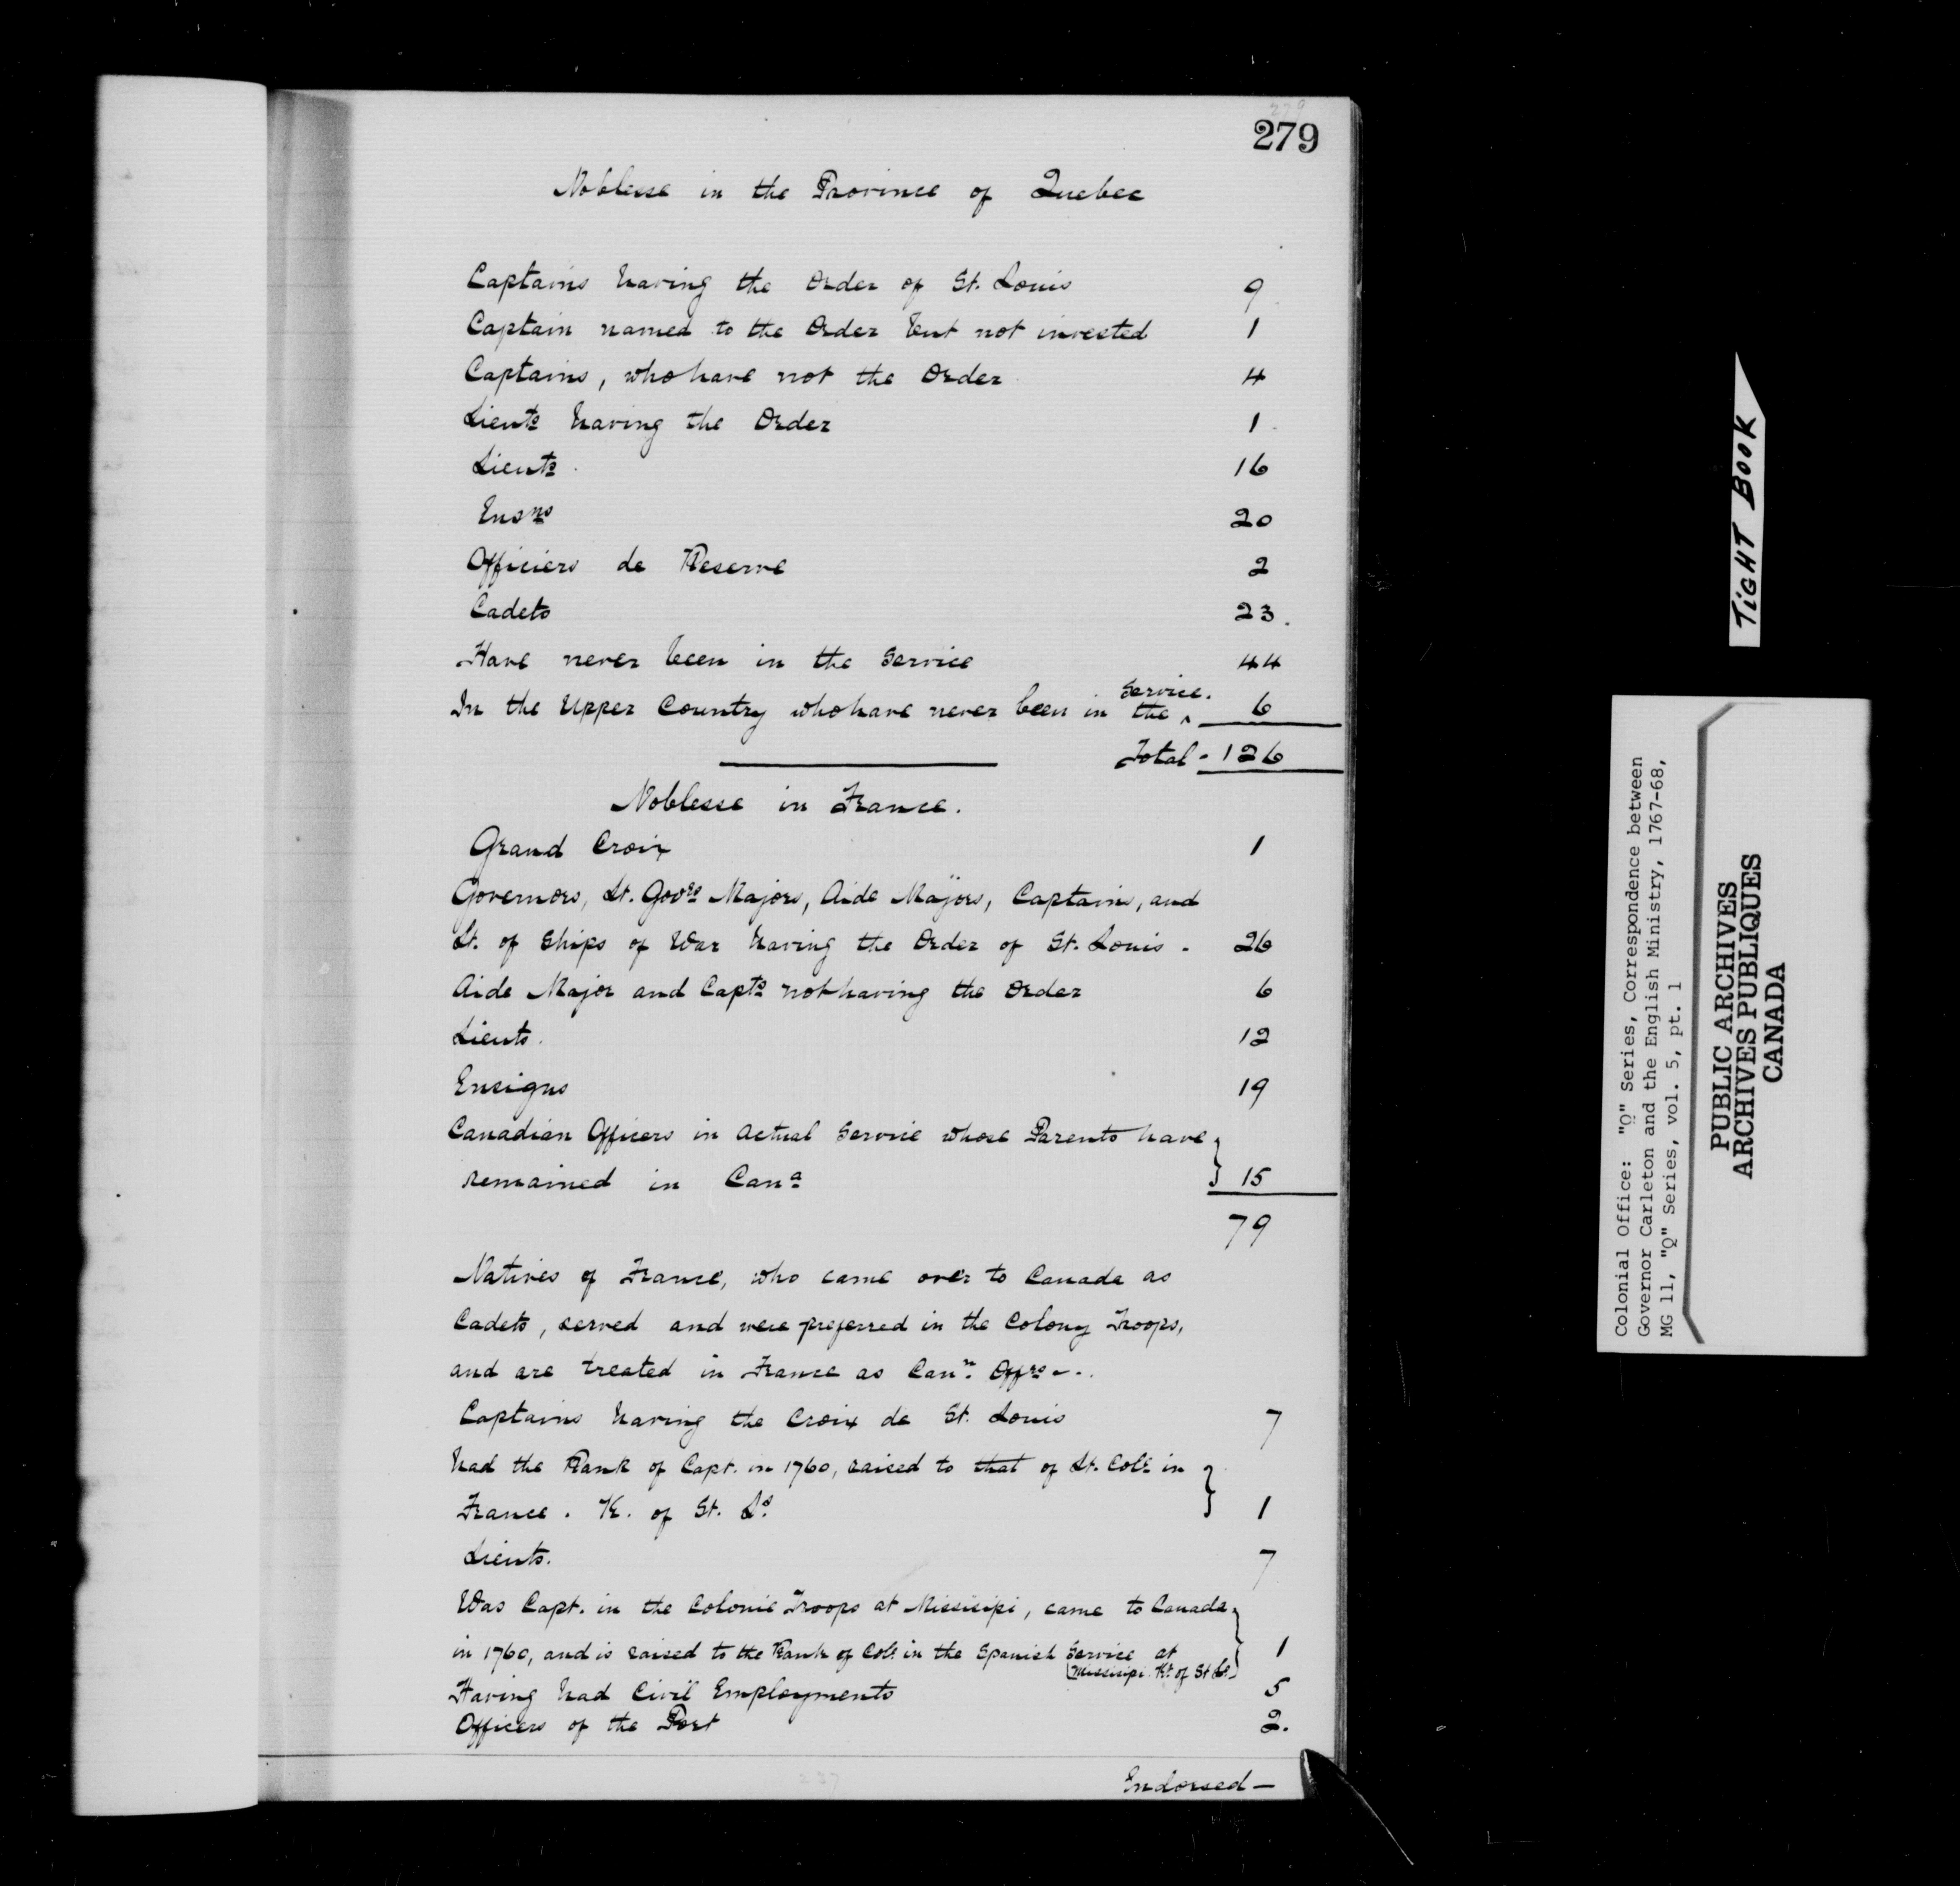 279
Noblesse in the Province of Quebec
Captains having the Order of St. Louis 9
Captain named to the Order but not invested 1
Captains, who have not the Order 4
Lieuts having the Order 1
Lieuts 16
Ensns 20
Officiers de Reserve 2
Cadets 23.
Have never been in the Service 44
In the Upper Country who have never been in the Service. 6
Total - 126
Noblesse in France.
Grand Croix 1
Governors, Lt. Govrs Majors, Aide Majors, Captains, and
Lt. of Ships of War having the Order of St. Louis - 26
Aide Major and Capts not having the Order 6
Lieuts. 12
Ensigns 19
Canadian Officers in actual Service whose Parents have
remained in Cana 15
79
Natives of France, who came over to Canada as
Cadets, served and were preferred in the Colony Troops,
and are treated in France as Cann. Offrs -.
Captains having the Croix de St. Louis 7
had the Rank of Capt. in 1760, raised to that of Lt. Coll. in
France. K. of St. Ls. 1
Lieuts. 7
Was Capt. in the Colonie Troops at Missisipi, came to Canada
in 1760, and is raised to the Rank of Coll. in the Spanish Service at 1
Missisipi. Kt. of St Ls.
Having had Civil Employments 5
Officers of the Port 2.
Endorsed —
237
TIGHT BOOK
Colonial Office: "Q" Series, Correspondence between
Governor Carleton and the English Ministry, 1767-68,
MG 11, "Q" Series, vol. 5, pt. 1
PUBLIC ARCHIVES
ARCHIVES PUBLIQUES
CANADA